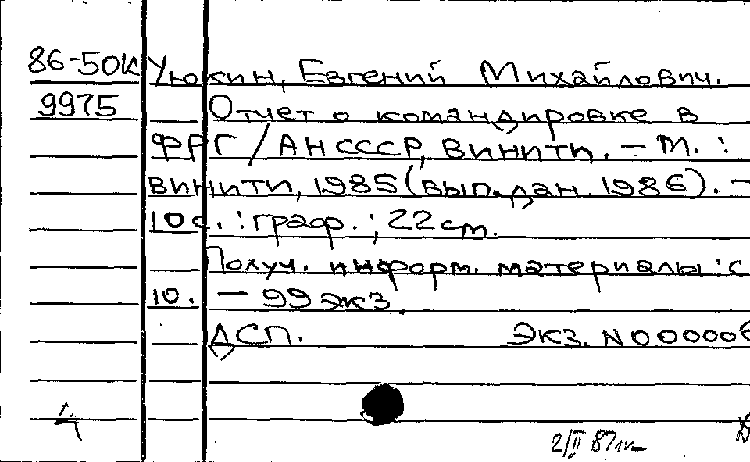 86-50К Уюкин, Евгений Михайлович.
9975 Отчет о командировке в
ФРГ / АН СССР, ВИНИТИ. – М. :
ВИНИТИ, 1985 (вып. дан. 1986). –
10с. : граф. ; 22 см.
Получ. информ. материалы: с
10. – 99 экз.
ДСП. Экз. N 000006
2/II 87г.